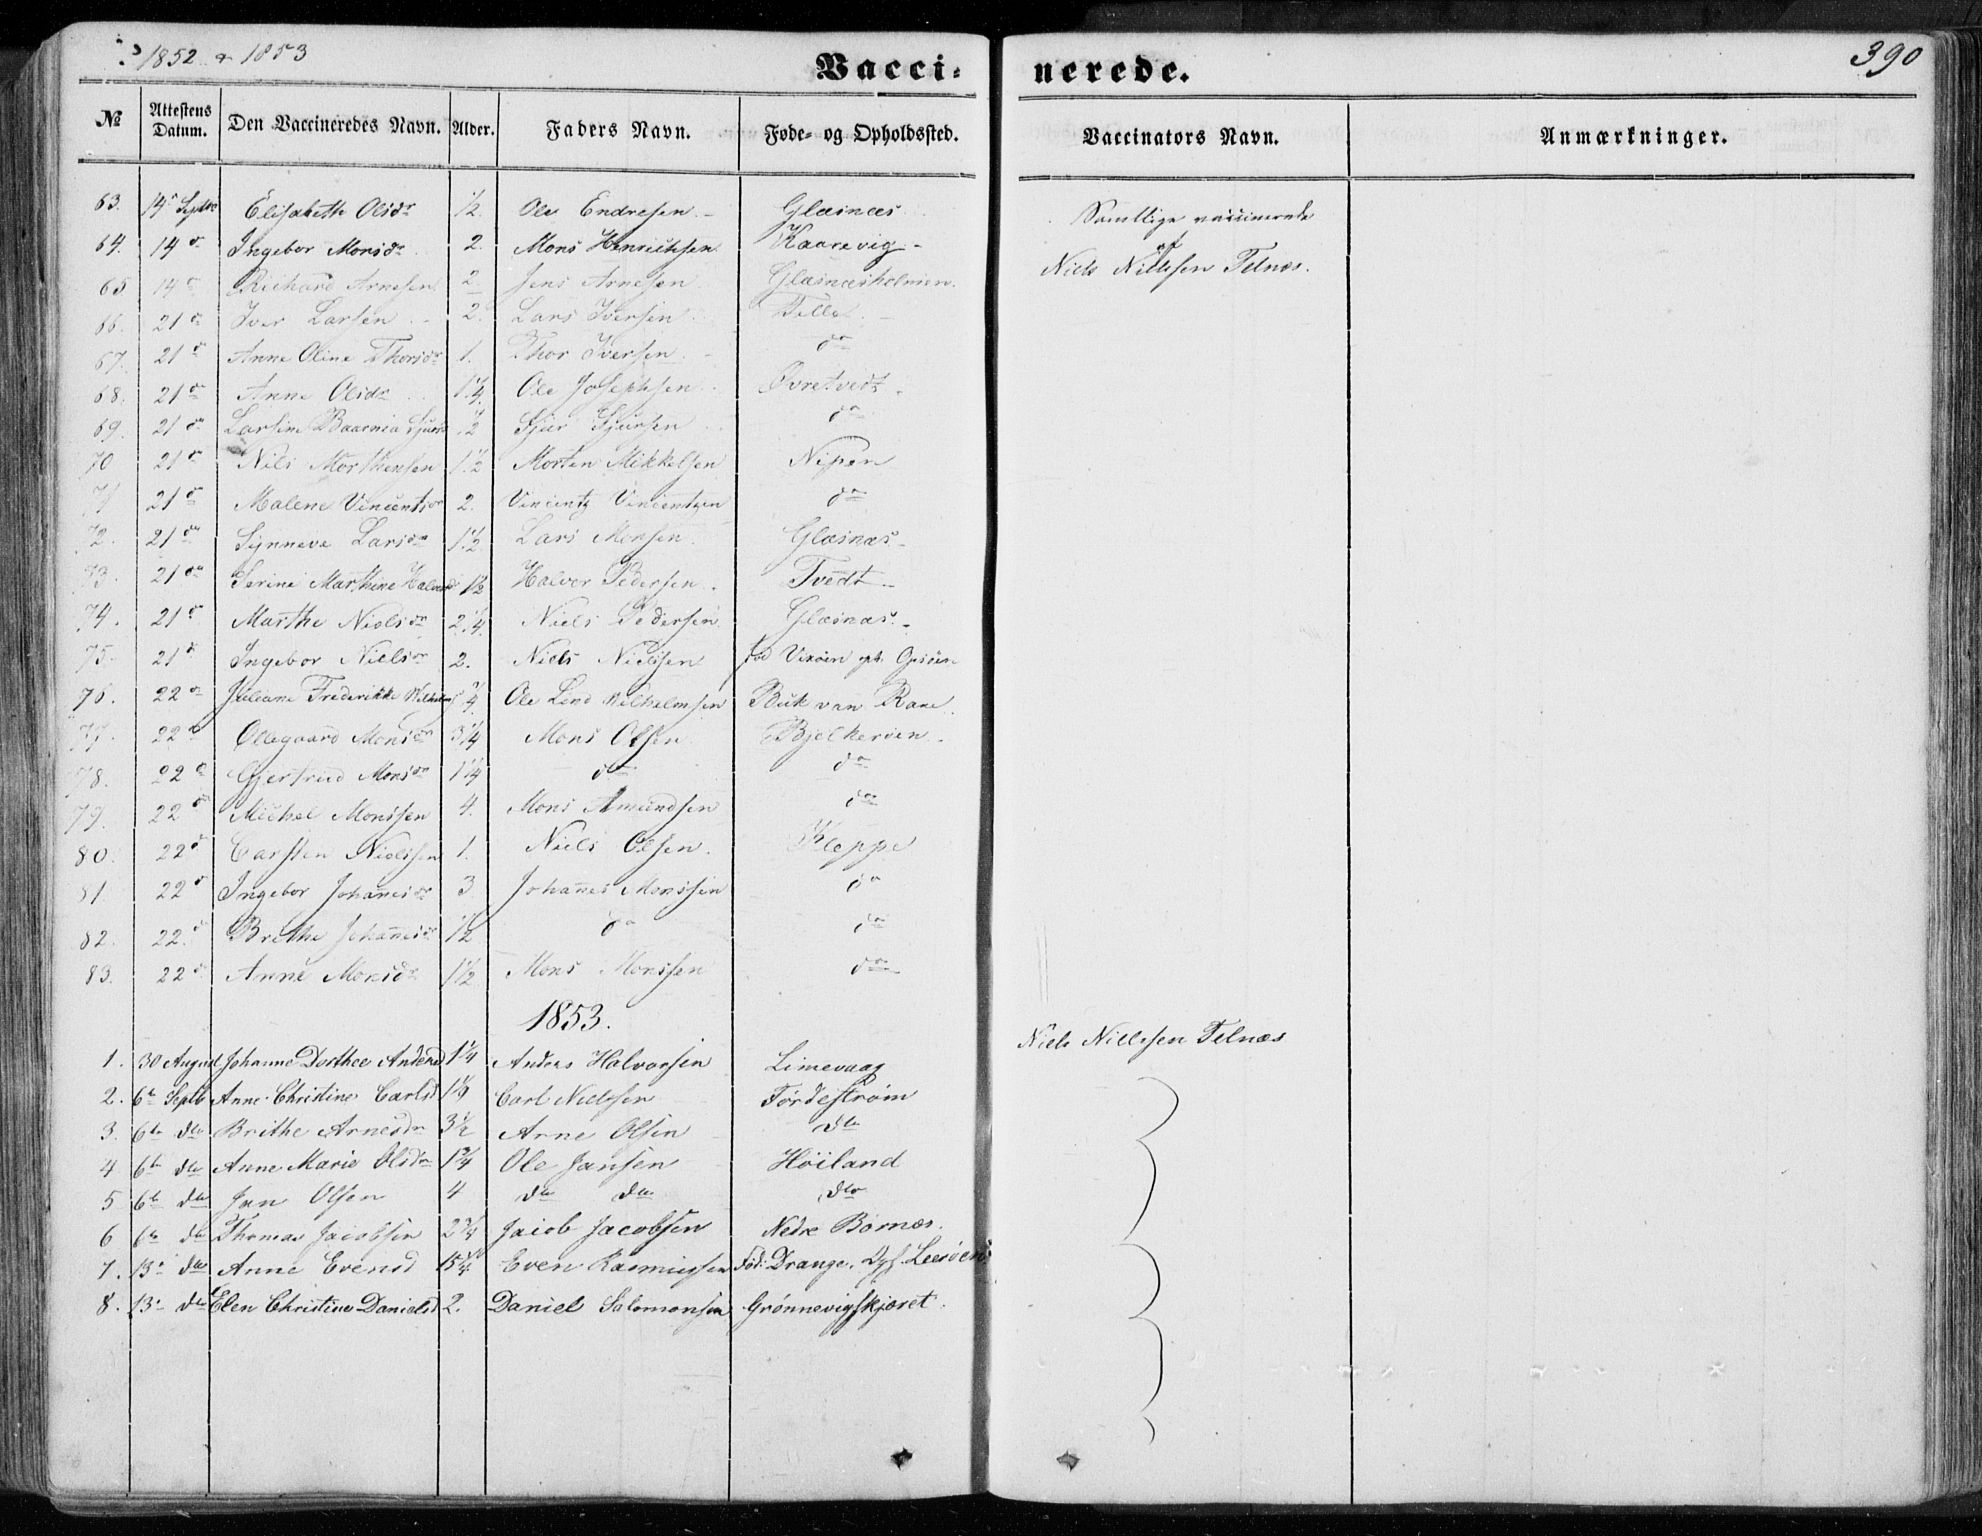 1852 & 1853
Vacci- nerede.
390
№ Attestens Datum. Den Vaccineredes Navn. Alder. Faders Navn. Føde- og Opholdssted. Vaccinators Navn. Anmærkninger.
63. 14 Septbr Elisabeth Olsdr 1/2 Ole Endresen Glæsnæs Samtlige vaccinerede
64. 14 do Ingebor Monsdr 2. Mons Henrichsen Kaarevig af
65 14 do Richard Arnesen 2 Jens Arnesen Glæsnæsholmen. Niels Nilssen Telnæs.
66. 21 do Iver Larsen 2. Lars Iversen Telle
67. 21 do Anne Oline Thorsdr 1. Thor Iversen do
68. 21 do Anne Olsdr 1 1/4 Ole Josephsen Øvretvedt
69. 21 do Larsine Sjurs 1/2 Sjur Sjursen do
70 21 do Nils Morthensen 1 1/2 Morten Mikkelsen Nipen
71 21 do Malene Vincentsdr 2. Vincentz Vincentzen do
72. 21 do Synneve Larsdr 1 1/2 Lars Monsen Glæsnæs
73. 21 do Serine Marthine Halvorsd 1 1/2 Halvor Pedersen Tvedt
74. 21 do Marthe Nielsdr 2 1/4 Niels Pedersen Glæsnæs
75. 21 do Ingebor Nielsdr 2. Niels Nielssen fød
76. 22 do Juliane Frederikke Wilhelms 3/4 Ole Lind Wilhelmsen Buk van Rane
77. 22 do Ollegaard Monsdr 3 1/4 Mons Olsen Bjelkerøen
78. 22 do Gjertrud Monsdr 1 1/4 do do
79. 22 do Michel Monssen 4. Mons Amundsen do
80. 22 do Carsten Nielssen 1. Niels Olsen. Kleppe
81 22 do Ingebor Johannesdr 3 Johannes Monssen do
82. 22. do Brithe Johannesdr 1/2 do do
83. 22 do Anne Monsdr 1 1/2 Mons Monssen do
1853.
1. 30 August Johanne Dorthea Andersd 1 1/4 Anders Halvorsen Limevaag Niels Nilssen Telnæs
2. 6te Septb Anne Christine Carlsd Carl Nielssen Førdestrøm
3. 6te dto Brithe Arnesdr 3 1/2 Arne Olsen dto
4 6te dto Anne Marie Olsdr 1 3/4 Ole Jansen Høiland
5 6te dto Jan Olsen 4 dto dto dto
6 6te dto Thomas Jacobsen 2 3/4 Jacob Jacobsen Nedre Bømæs.
7. 13de dto Anne Evensd 15 1/4 Even Rasmussen Fød: Drange. Oph. Leerøen
8. 13de dto Elen Christine Danielsd 2. Daniel Salomonsen Grønnevigskjæret.